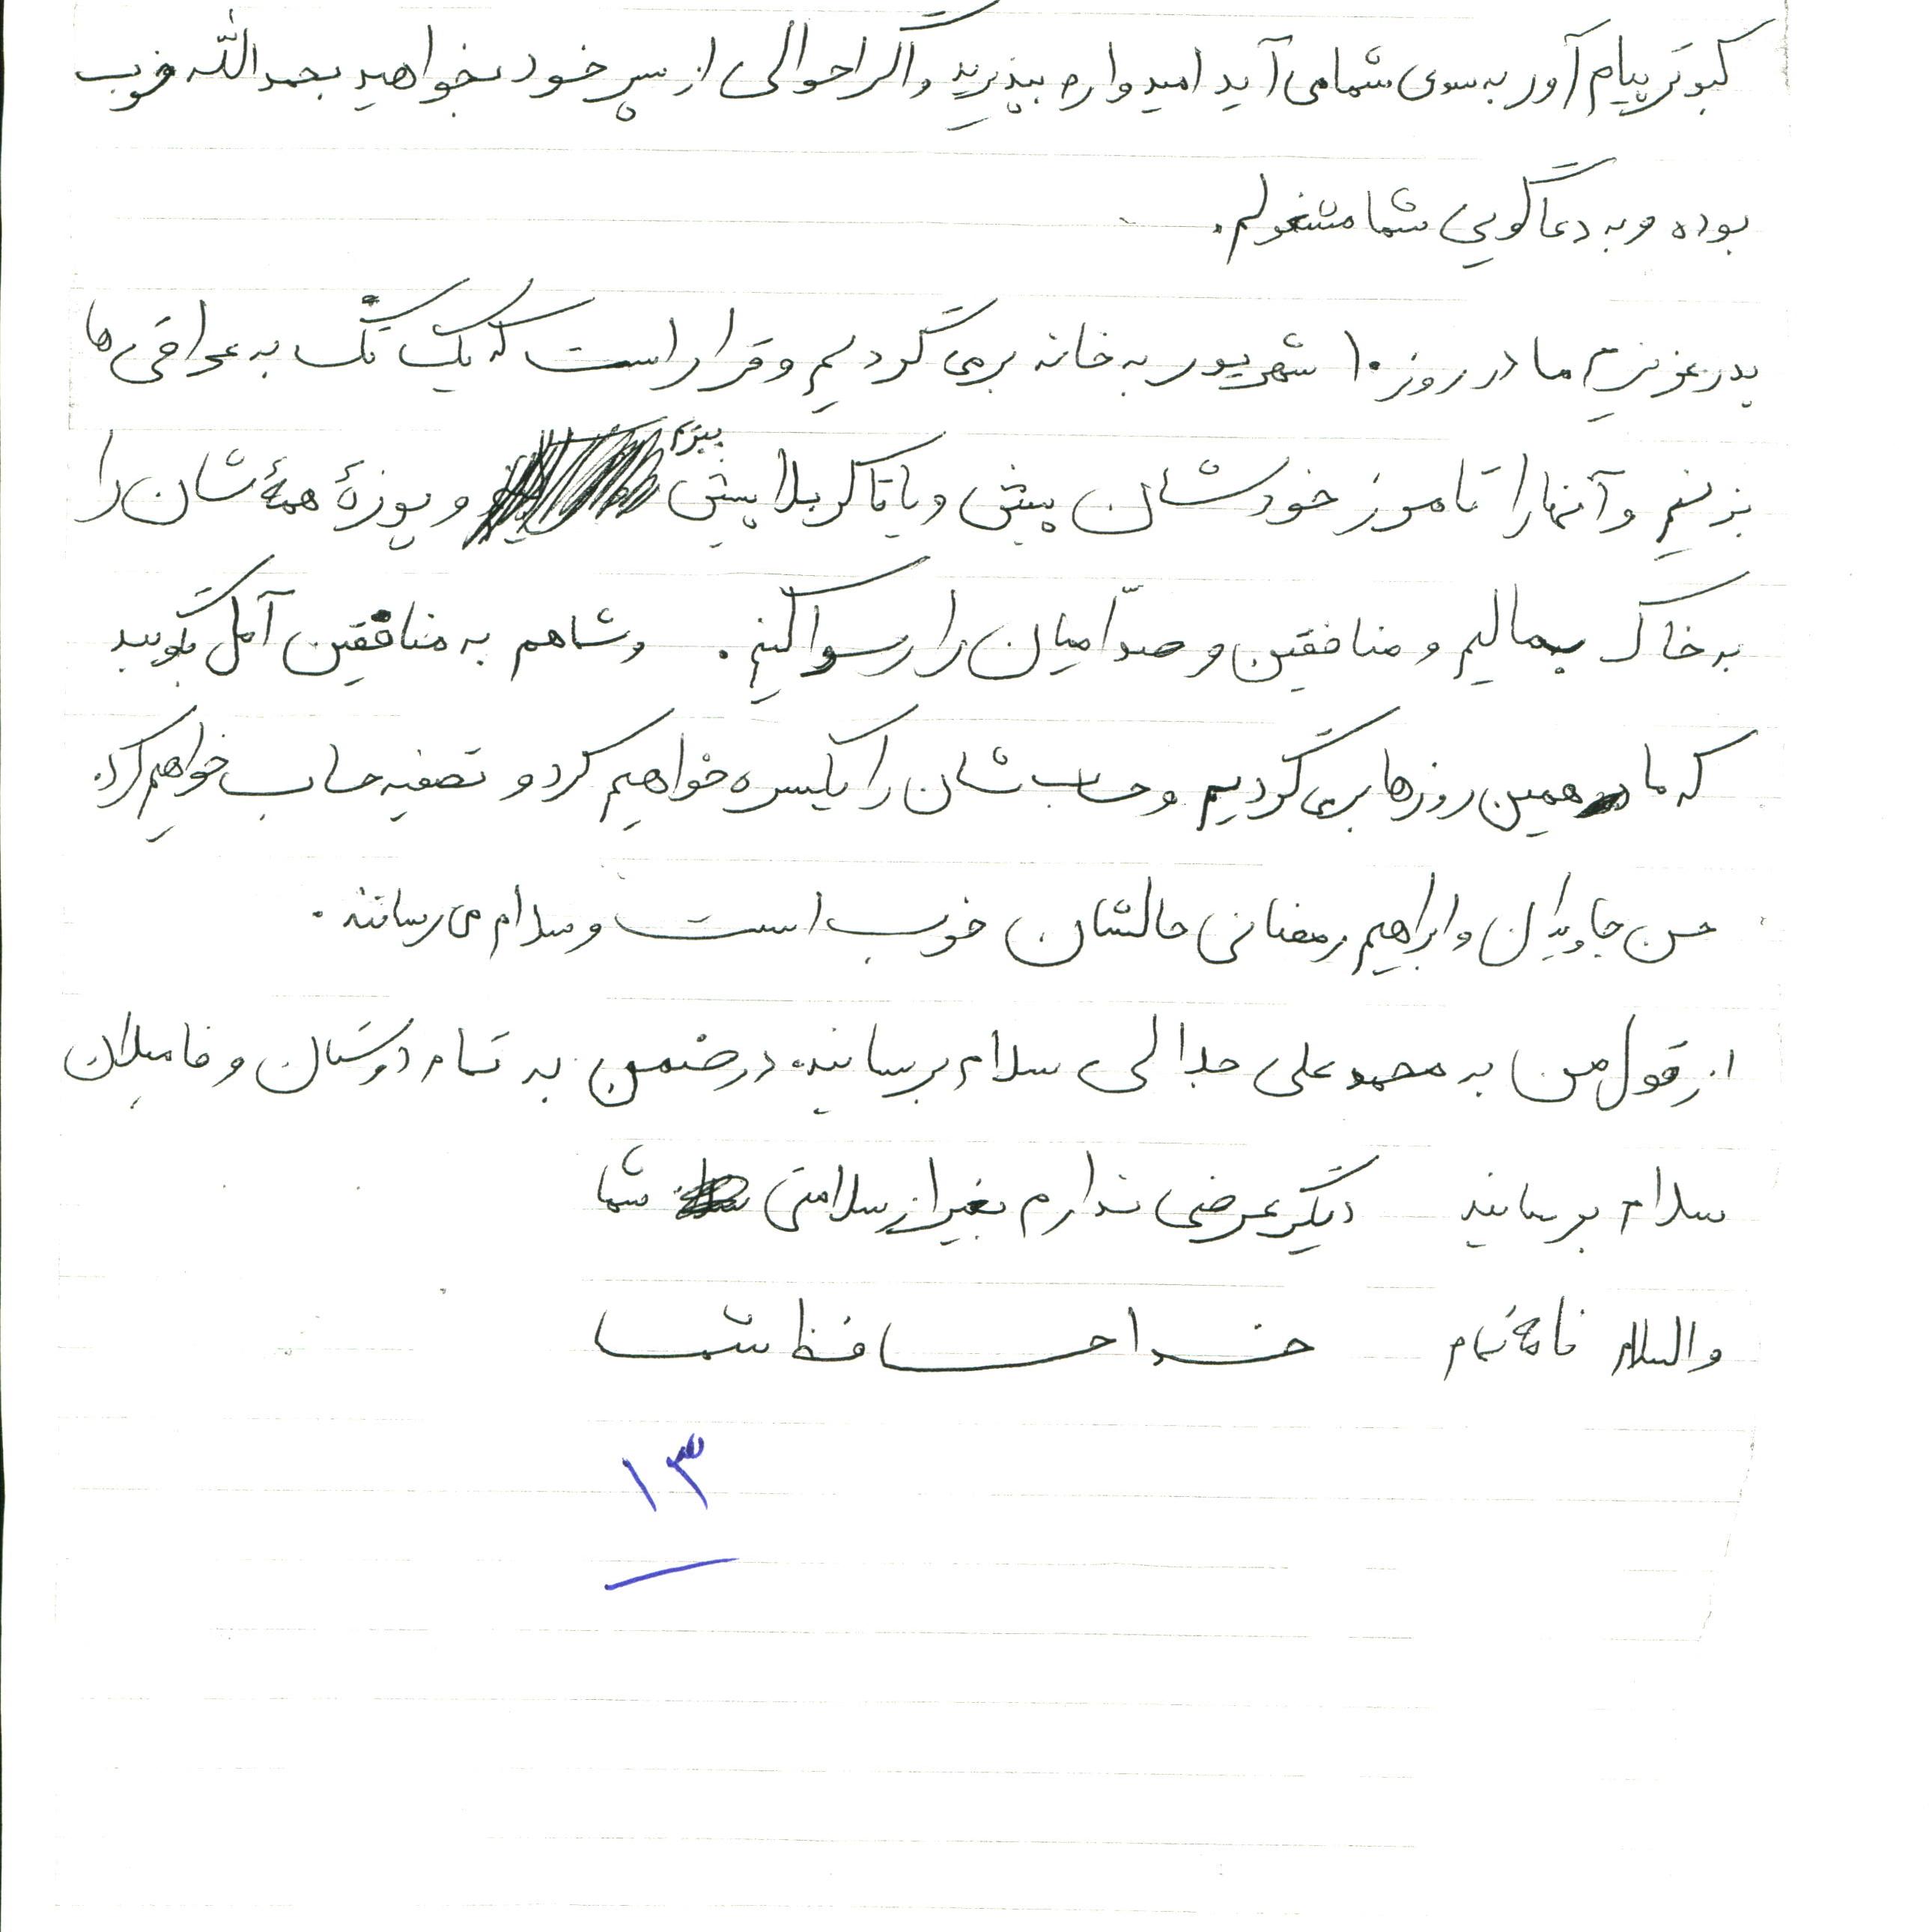 کبوتر پیام آور به سوی شما می آید امیدوارم بپذیرید و اگر احوالی از پسر خود بخواهید بحمدالله خوب
بوده و به دعاگویی شما مشغولم.
پدر عزیزم ما در روز ۱۰ شهریور به خانه برمی گردیم و قرار است که یک تک به عراقی ها
بزنیم و آنها را تا مرز خودشان پیش و یا تا کربلا پیش ببریم و پوزهٔ همهٔ شان را
به خاک بمالیم و منافقین و صدّامیان را رسوا کنیم. و شما هم به منافقین آمل بگویید
که ما در همین روزها برمی گردیم و حساب شان را یکسره خواهیم کرد و تصفیه حساب خواهیم کرد.
حسن جاویدان و ابراهیم رمضانی حالشان خوب است و سلام می رسانند.
از قول من به محمد علی جلالی سلام برسانید. در ضمن به تمام دوستان و فامیلان
سلام برسانید دیگر عرضی ندارم بغیر از سلامتی شما
والسلام نامه تمام خدا حافظ شما
۱۳